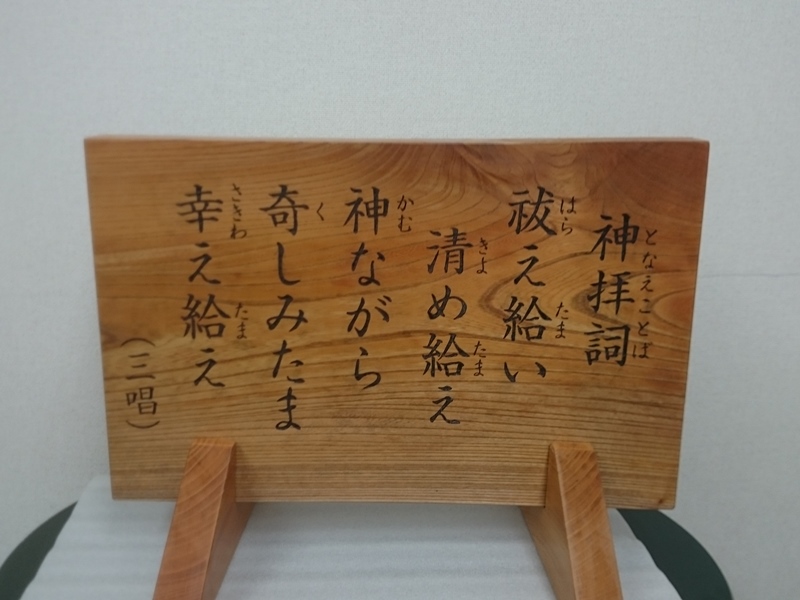 神拝詞
となえことば
祓え給い
はら たま
清め給え
きよ たま
神ながら
かむ
奇しみたま
く
幸え給え
さきわ たま
（三唱）